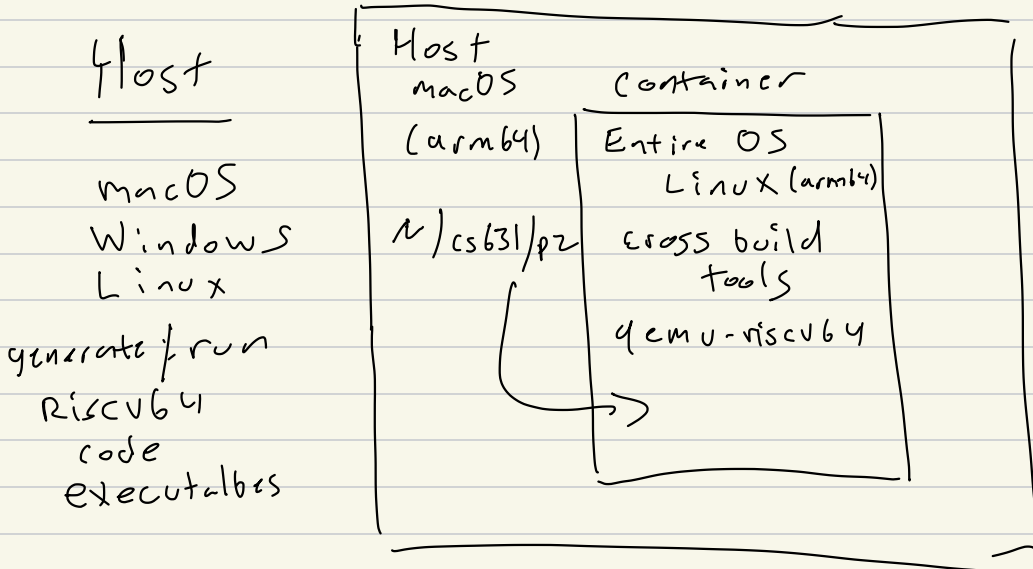 Host
macOS
Windows
Linux
generate/run
Riscv64
code
executalbes
Host
macOS
(arm64)
~/cs631/p2
Container
Entire OS
Linux (arm64)
cross build
tools
qemu-riscv64